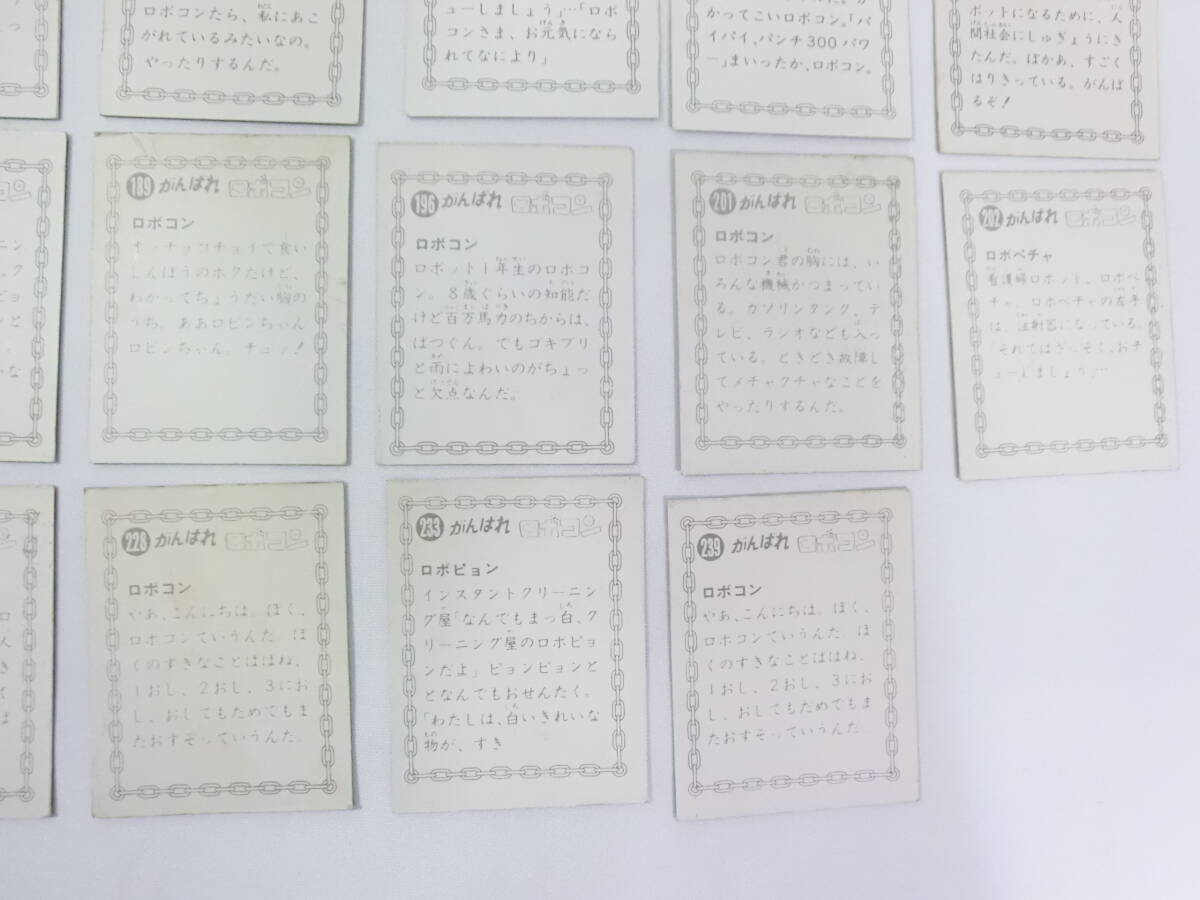 ロボコンたら、私にあこ
がれているみたいなの。
やったりするんだ。
ューしましょう」…「ロボ
コンさま、お元気になら
れてなにより」
かってこいロボコン。「パ
イパイ、パンチ300パワ
ー」まいったか、ロボコン。
ボットになるために、人
間社会にしゅぎょうにき
たんだ。ぼかあ、すごく
はりきっている。がんば
るぞ!
189 がんばれ ロボコン
ロボコン
オッチョコチョイで食い
しんぼうのボクだけど、
わかってちょうだい胸の
うち、ああロビンちゃん
ロビンちゃん、チュッ!
196 がんばれ ロボコン
ロボコン
ロボット1年生のロボコ
ン。8歳ぐらいの知能だ
けど百万馬力のちからは、
ばつぐん。でもゴキブリ
と雨によわいのがちょっ
と欠点なんだ。
201 がんばれ ロボコン
ロボコン
ロボコン君の胸には、い
ろんな機械がつまってい
る。ガソリンタンク、テ
レビ、ラジオなども入っ
ている。ときどき故障し
てメチャクチャなことを
やったりするんだ。
202 がんばれ ロボコン
ロボペチャ
看護婦ロボット、ロボペ
チャ。ロボペチャの左手
は、注射器になっている。
「それではさっそく、おチ
ューしましょう」…
228 がんばれ ロボコン
ロボコン
やあ、こんにちは。ぼく、
ロボコンていうんだ。ぼ
くのすきなことばはね、
1おし、2おし、3にお
し、おしてもだめでもま
たおすぞっていうんだ。
233 がんばれ ロボコン
ロボピョン
インスタントクリーニン
グ屋「なんでもまっ白、ク
リーニング屋のロボピョ
ンだよ」ピョンピョンと
となんでもおせんたく。
「わたしは、白いきれいな
物が、すき
239 がんばれ ロボコン
ロボコン
やあ、こんにちは。ぼく、
ロボコンていうんだ。ぼ
くのすきなことばはね、
1おし、2おし、3にお
し、おしてもだめでもま
たおすぞっていうんだ。